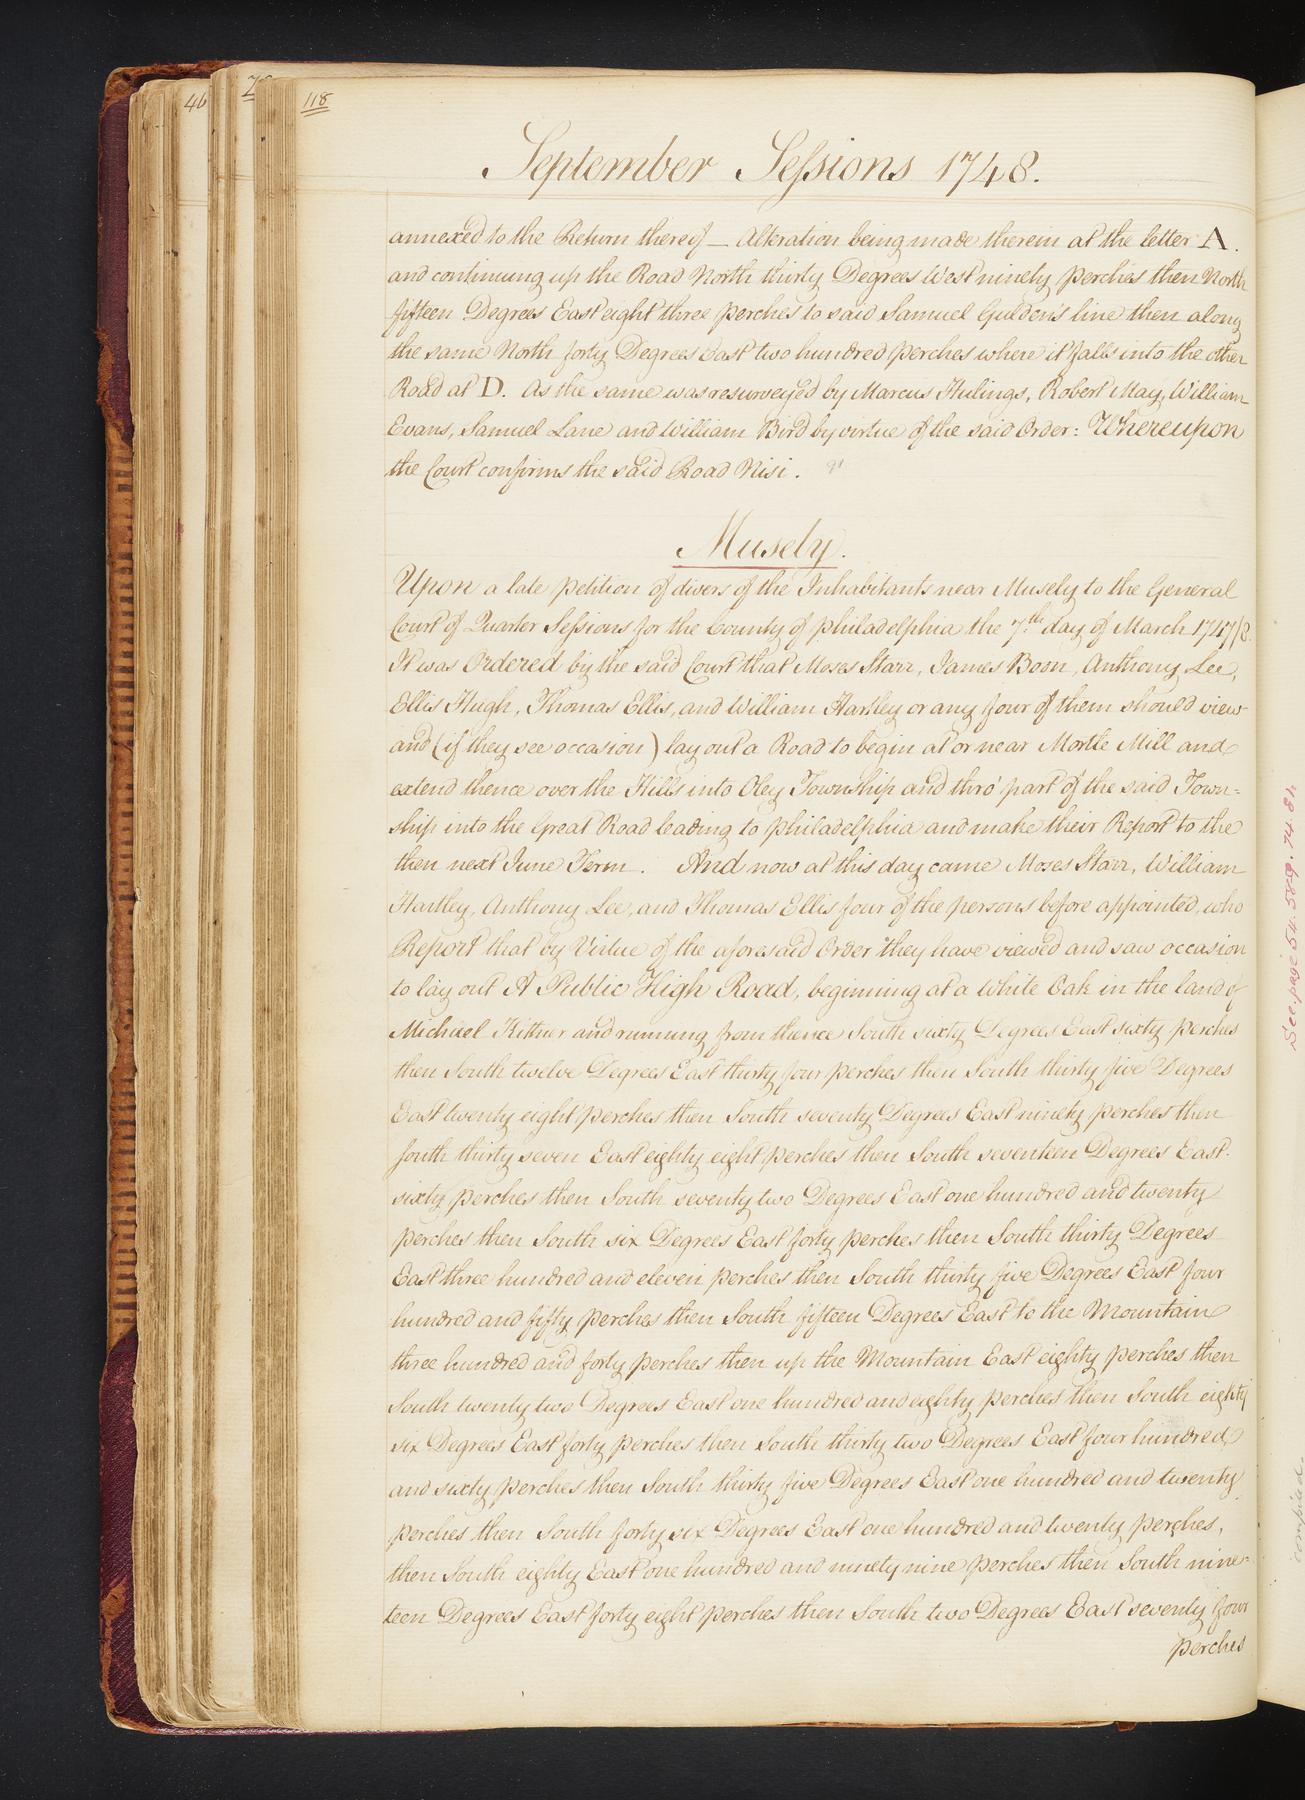 46
118
September Sessions 1748.
annexed to the Return thereof — Alteration being made therein at the letter A.
and continuing up the Road North thirty Degrees West ninety perches then North
fifteen Degrees East eight three perches to said Samuel Gulden's line then along
the same North forty Degrees East two hundred perches where it falls into the other
Road at D. As the same was resurveyed by Marcus Hulings, Robert May, William
Evans, Samuel Lane and William Bird by virtue of the said Order: Whereupon
the Court confirms the said Road Nisi.
Musely.
Upon a late petition of divers of the Inhabitants near Musely to the General
Court of Quarter Sessions for the County of philadelphia the 7th day of March 1747/8.
It was Ordered by the said Court that Moses Starr, James Boon, Anthony Lee,
Ellis Hugh, Thomas Ellis, and William Hartley or any four of them should view
and (if they see occasion) lay out a Road to begin at or near Mortle Mill and
extend thence over the Hills into Oley Township and thro' part of the said Town=
ship into the Great Road leading to philadelphia and make their Report to the
then next June Term. And now at this day came Moses Starr, William
Hartley, Anthony Lee, and Thomas Ellis four of the persons before appointed, who
Report that by Virtue of the aforesaid Order they have viewed and saw occasion
to lay out A Public High Road, beginning at a White Oak in the land of
Michael Kittner and running from thence South sixty Degrees East sixty perches
then South twelve Degrees East thirty four perches then South thirty five Degrees
East twenty eight perches then South seventy Degrees East ninety perches then
South thirty seven East eighty eight perches then South seventeen Degrees East.
sixty perches then South seventy two Degrees East one hundred and twenty
perches then South six Degrees East forty perches then South thirty Degrees
East three hundred and eleven perches then South thirty five Degrees East four
hundred and fifty perches then South fifteen Degrees East to the Mountain
three hundred and forty perches then up the Mountain East eighty perches then
South twenty two Degrees East one hundred and eighty perches then South eighty
six Degrees East forty perches then South thirty two Degrees East four hundred
and sixty perches then South thirty five Degrees East one hundred and twenty
perches then South forty six Degrees East one hundred and twenty perches,
then South eighty East one hundred and ninety nine perches then South nine=
teen Degrees East forty eight perches then South two Degrees East seventy four
perches
See page 54. 58-9. 74. 84
compiled.